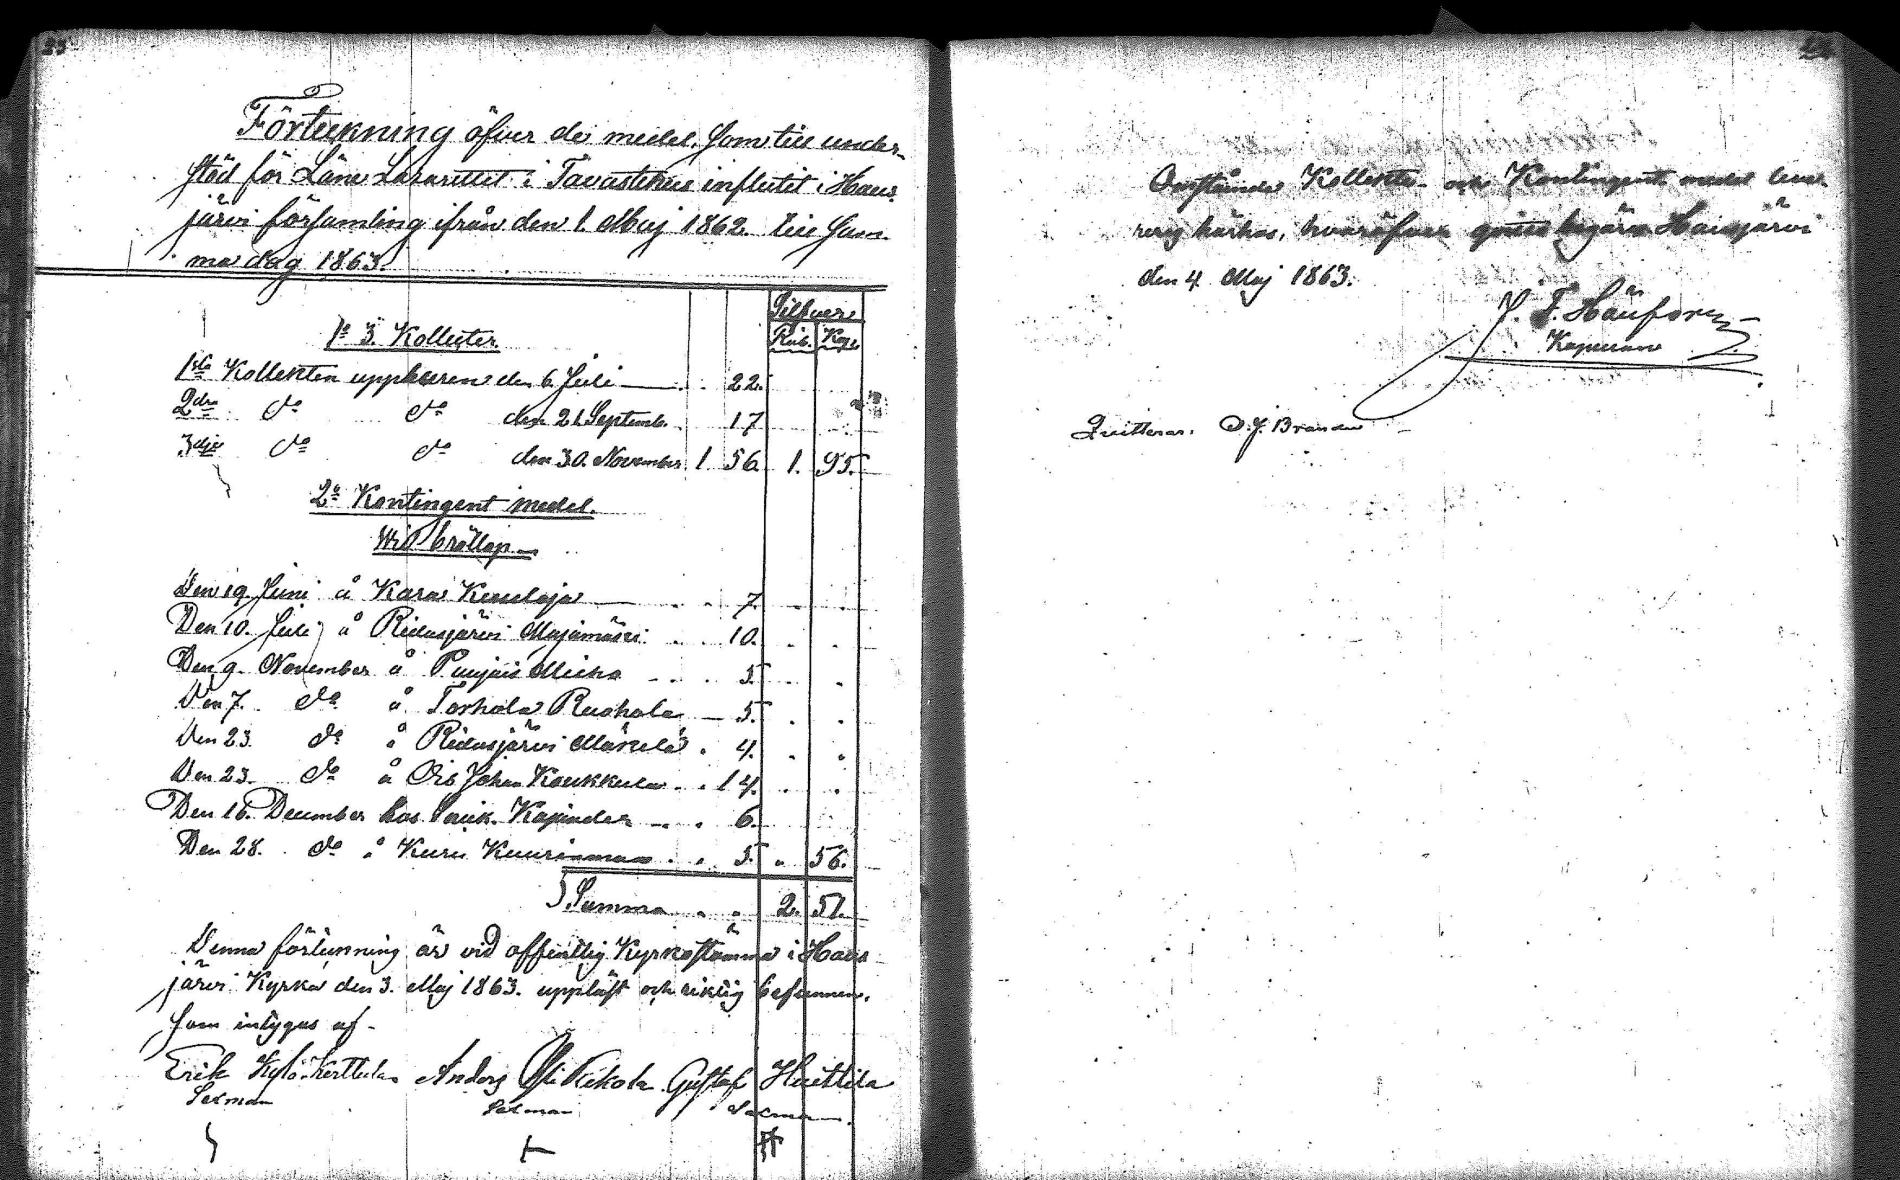 23
Förteckning öfver de medel, som till under-
stöd för Läns Lazarettet i Tavastehus influtit i Haus-
järvi församling ifrån den 1. Maj 1862. till sam-
ma dag 1863.
Silfver
Rub. Kop.
1o 3. Kollecter.
1sta Kollekten uppburen den 6. Juli 22.
2dra do do den 21. Septemb. 17
3dje do do den 30. November 1 56 1. 95.
2o Kontingent medel.
Wid bröllop
Den 19. Juni å Kara Keuselaja 7.
Den 10. Juli å Ridasjärvi Majamäki 10.
Den 9. November å Punjais Micko 5.
Den 7. do å Torhola Ruokola 5.
Den 23. do å Ridasjärvi Mäkelä 4.
Den 23. do å Ois Johan Koukkula 14.
Den 16. December hos 6.
Den 28. do å Kuru Kuurinmaa 5. 56.
Summa 2. 51.
Denna förteckning är vid offentlig Kyrkostämma i Haus-
järvi Kyrka den 3. Maj 1863. uppläst och riktig befunnen,
som intygas af
Erik Kylä-Kerttula Anders Olli Kekola Gustaf Huittila
Sexman Sexman Sexman
Kollekte- och Kontingent medel
härhos, hvaröfver begäres Hausjärvi
den 4. Maj 1863.
Kapellan
Quitteras.